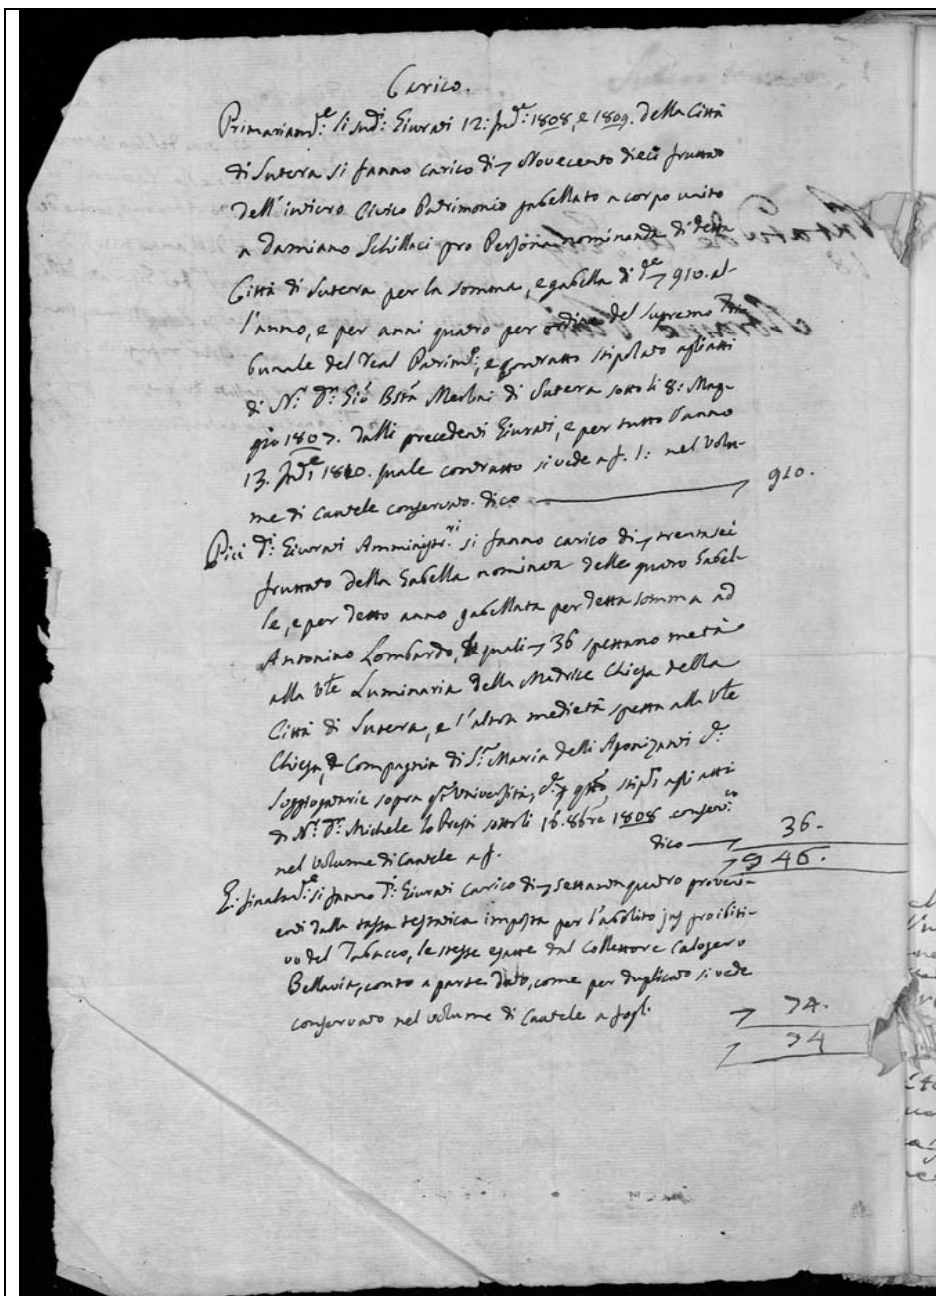 Carico.
Primariamte: li sudi: Giurati 12: Inde: 1808, e 1809. della Città
di Sutera si fanno carico di 7 Novecento dieci fruttato
dell'intiero Civico Patrimonio gabellato a corpo unito
a Damiano Schillaci pro Persona nominanda di detta
Città di Sutera per la somma, e gabella di de 7 910. al-
l'anno, e per anni quatro per ordine del Supremo Tri
bunale del Real Patrimo:, e contratto stipolato agli atti
di Nr: Dn: Gio: Bsta Merlini di Sutera sotto li 8: Mag-
gio 1807. dalli precedenti Giurati, e per tutto l'anno
13. Inde: 1810. quale contratto si vede a f. 1: nel volu-
me di cautele conservato. dico 7 910.
Più di: Giurati Amministri: si fanno carico di 7 trentasei
fruttato della Gabella nominata delle quatro Gabel-
le, e per detto anno gabellata per detta somma ad
Antonino Lombardo, le quali 7 36 spettano metà
alla Vle Luminaria della Madrice Chiesa della
Città di Sutera, e l'altra medietà spetta alla Vle
Chiesa, e Compagnia di S: Maria delli Agonizanti
Suggiogatarie sopra Università, stipi: agli atti
di Nr: Dn: Michele lo Presti sotto li 16. 8bre 1808 conservco
nel volume di Cautele a f. dico 7 36.
7 946.
E: finalmte: si fanno di: Giurati carico di 7 settantaquatro proven-
enti dalla tassa testatica imposta per l'abolito jus proibiti-
vo del Tabacco, le stesse esatte dal Collettore Calogero
Bellavia, conto a parte dato, come per duplicato si vede
conservato nel volume di Cautele a fogl. 7 74.
7 74